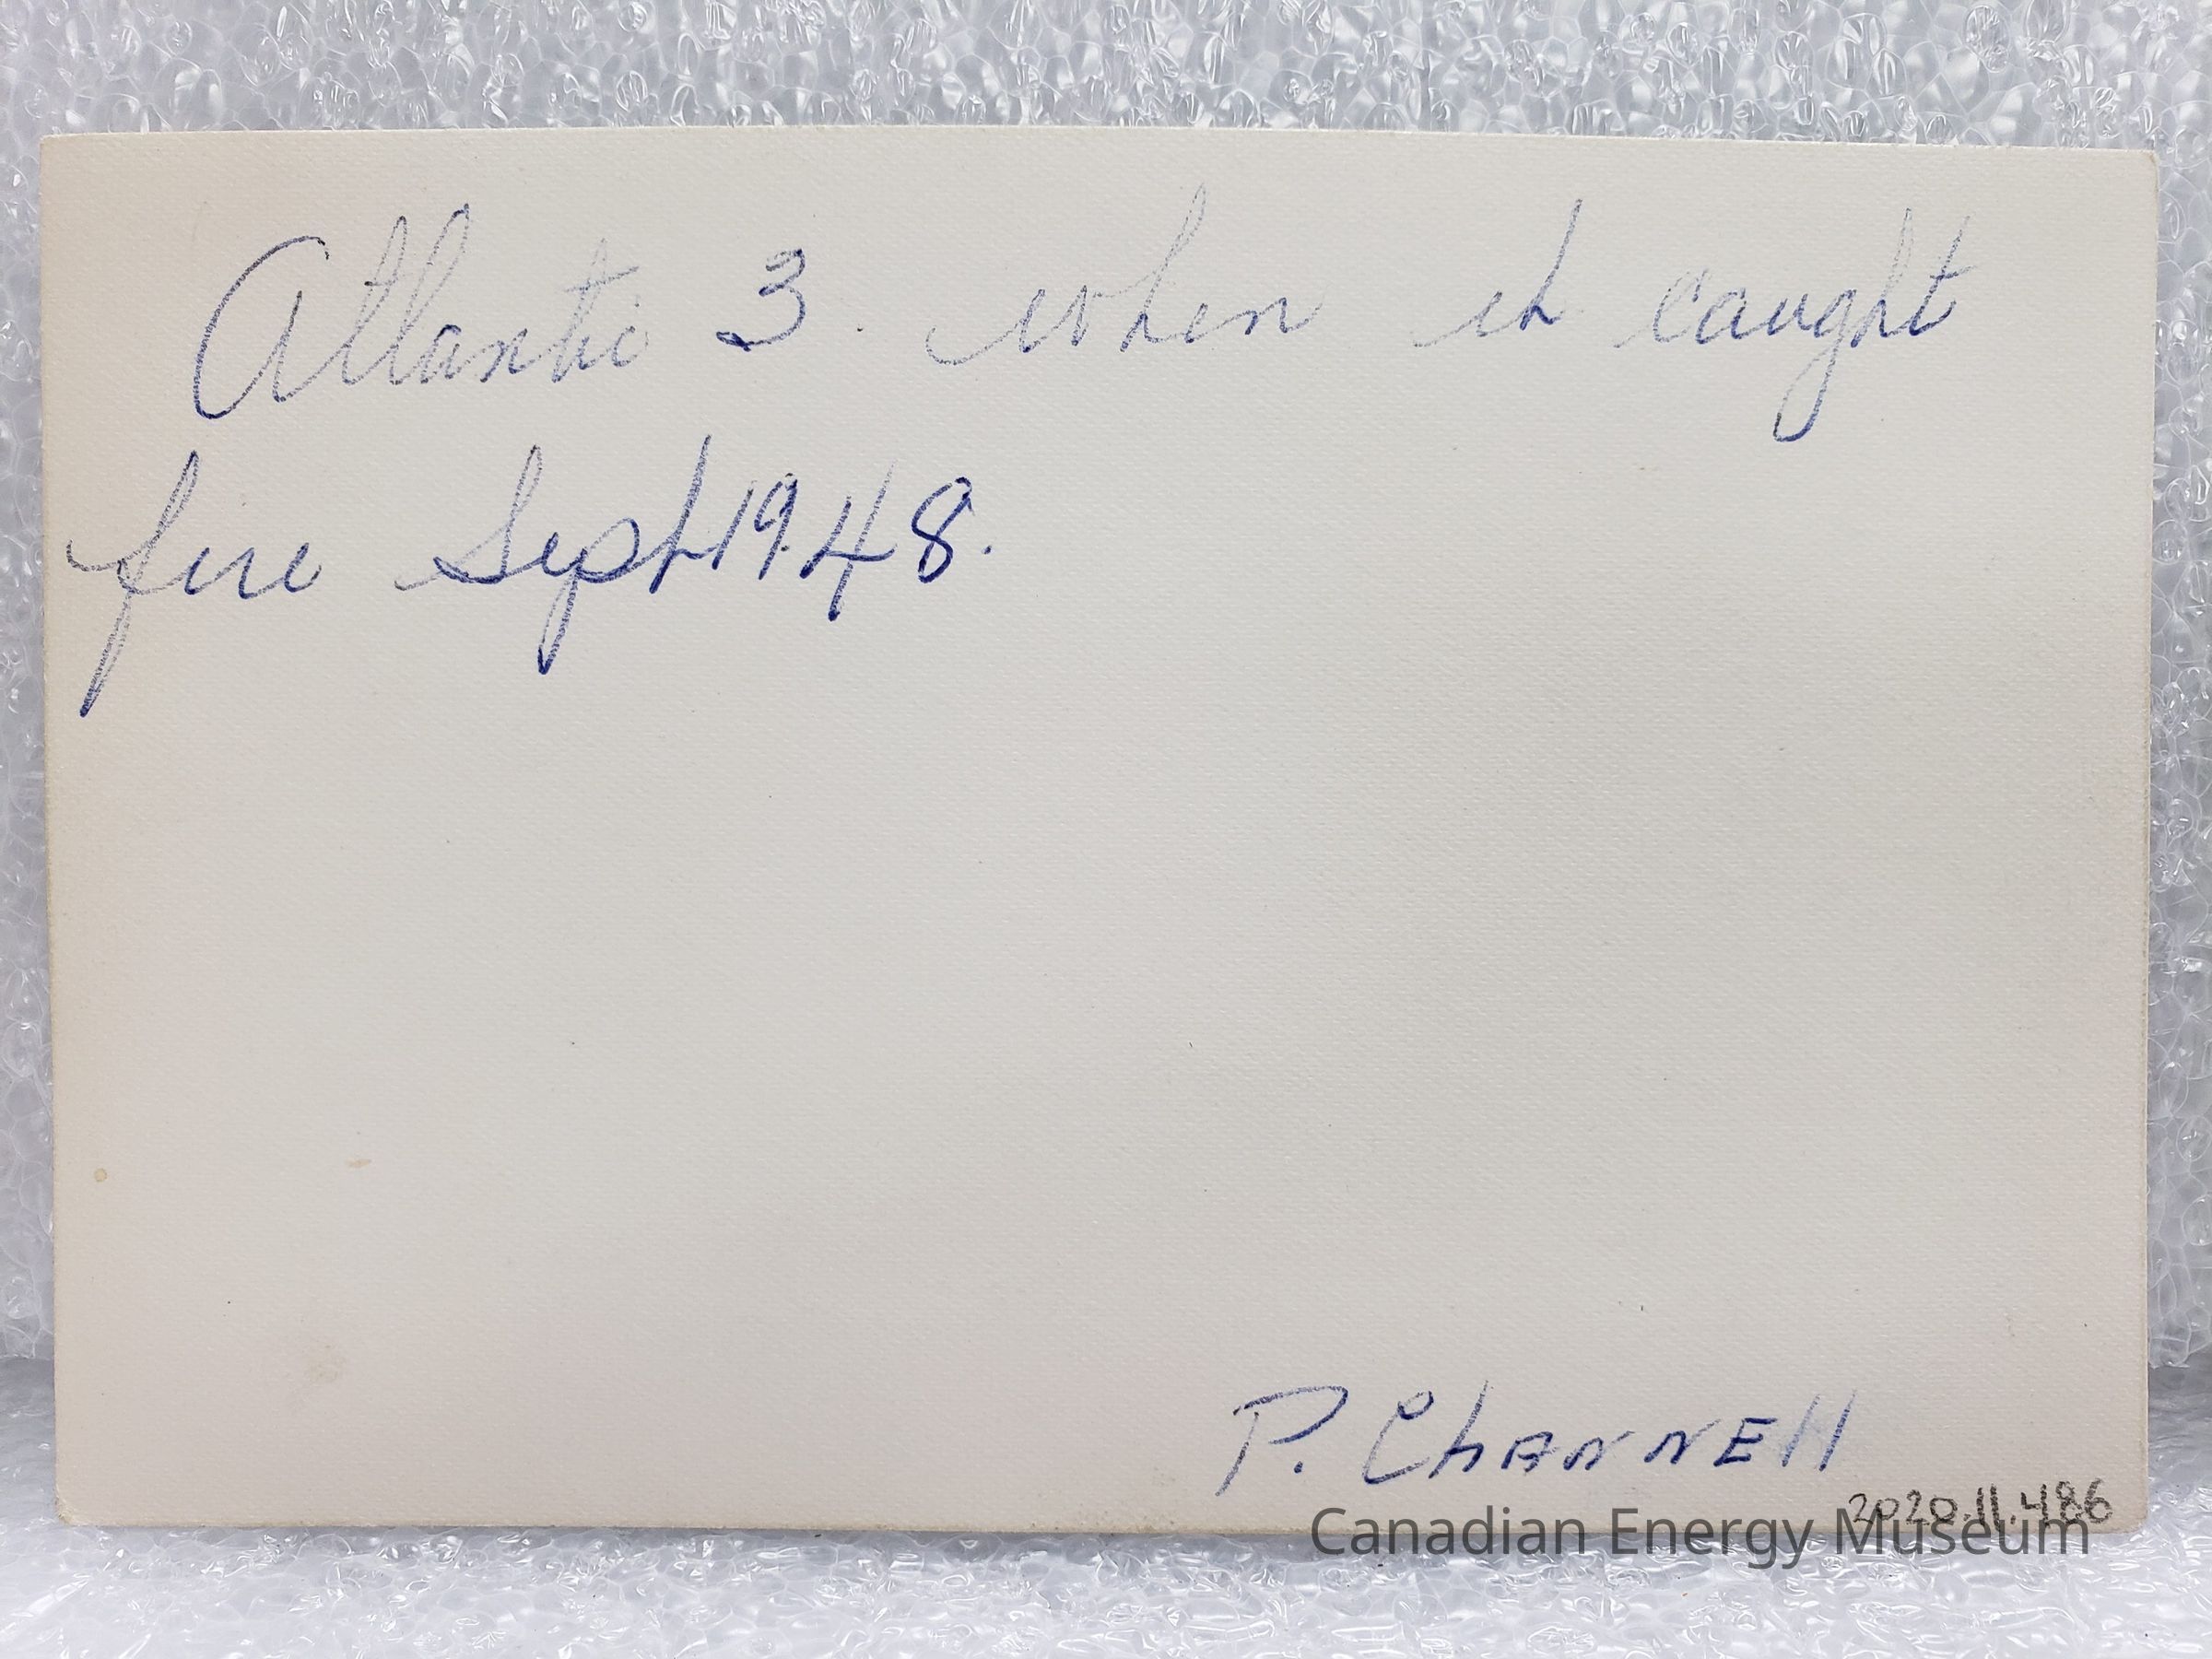 Atlantic 3. when it caught
fire Sept 1948.
P. Channell
2020.11.486
Canadian Energy Museum